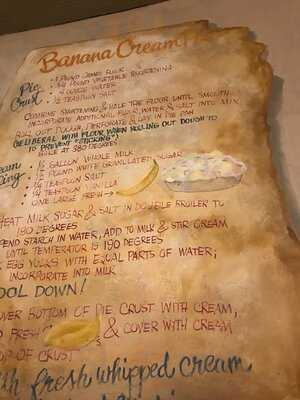 Banana Cream
Pie Crust
1 POUND CAKE FLOUR
3/4 POUND VEGETABLE SHORTENING
4 OUNCE WATER
1/2 TEASPOON SALT
COMBINE SHORTENING & HALF THE FLOUR UNTIL SMOOTH
INCORPORATE ADDITIONAL FLOUR, WATER & SALT INTO MIX
ROLL OUT DOUGH, PERFORATE & LAY IN PIE PAN
(BE LIBERAL WITH FLOUR WHEN ROLLING OUT DOUGH TO
TO PREVENT "STICKING")
BAKE AT 380 DEGREES
GALLON WHOLE MILK
POUND WHITE GRANULATED SUGAR
TEASPOON SALT
TEASPOON VANILLA
ONE LARGE FRESH
HEAT MILK SUGAR & SALT IN DOUBLE BROILER TO
180 DEGREES
STARCH IN WATER, ADD TO MILK & STIR CREAM
UNTIL TEMPERATOR IS 190 DEGREES
EGG YOLKS WITH EQUAL PARTS OF WATER;
INCORPORATE INTO MILK
COOL DOWN!
COVER BOTTOM OF PIE CRUST WITH CREAM,
FRESH & COVER WITH CREAM
TOP OF CRUST
with fresh whipped cream